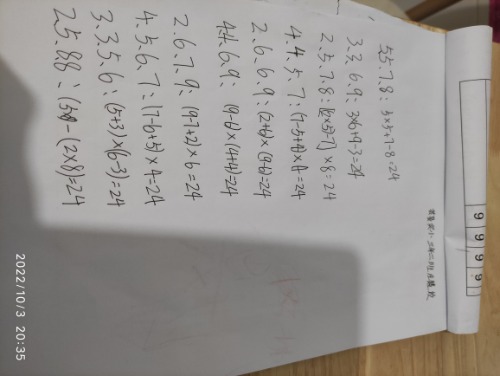 9 9 9 9
5.5.7.8: 5×5+7-8=24
3.3.6.9: 3×6+9-3=24
2.5.7.8: [(2×5)-7]×8=24
4.4.5.7: (7-5+4)×4=24
2.6.6.9: (2+6)×(9-6)=24
4.4.6.9: (9-6)×(4+4)=24
2.6.7.9: (9-7+2)×6=24
4.5.6.7: (7-6+5)×4=24
3.3.5.6: (5+3)×(6-3)=24
2.5.8.8: (5×8)-(2×8)=24
2022/10/3 20:35